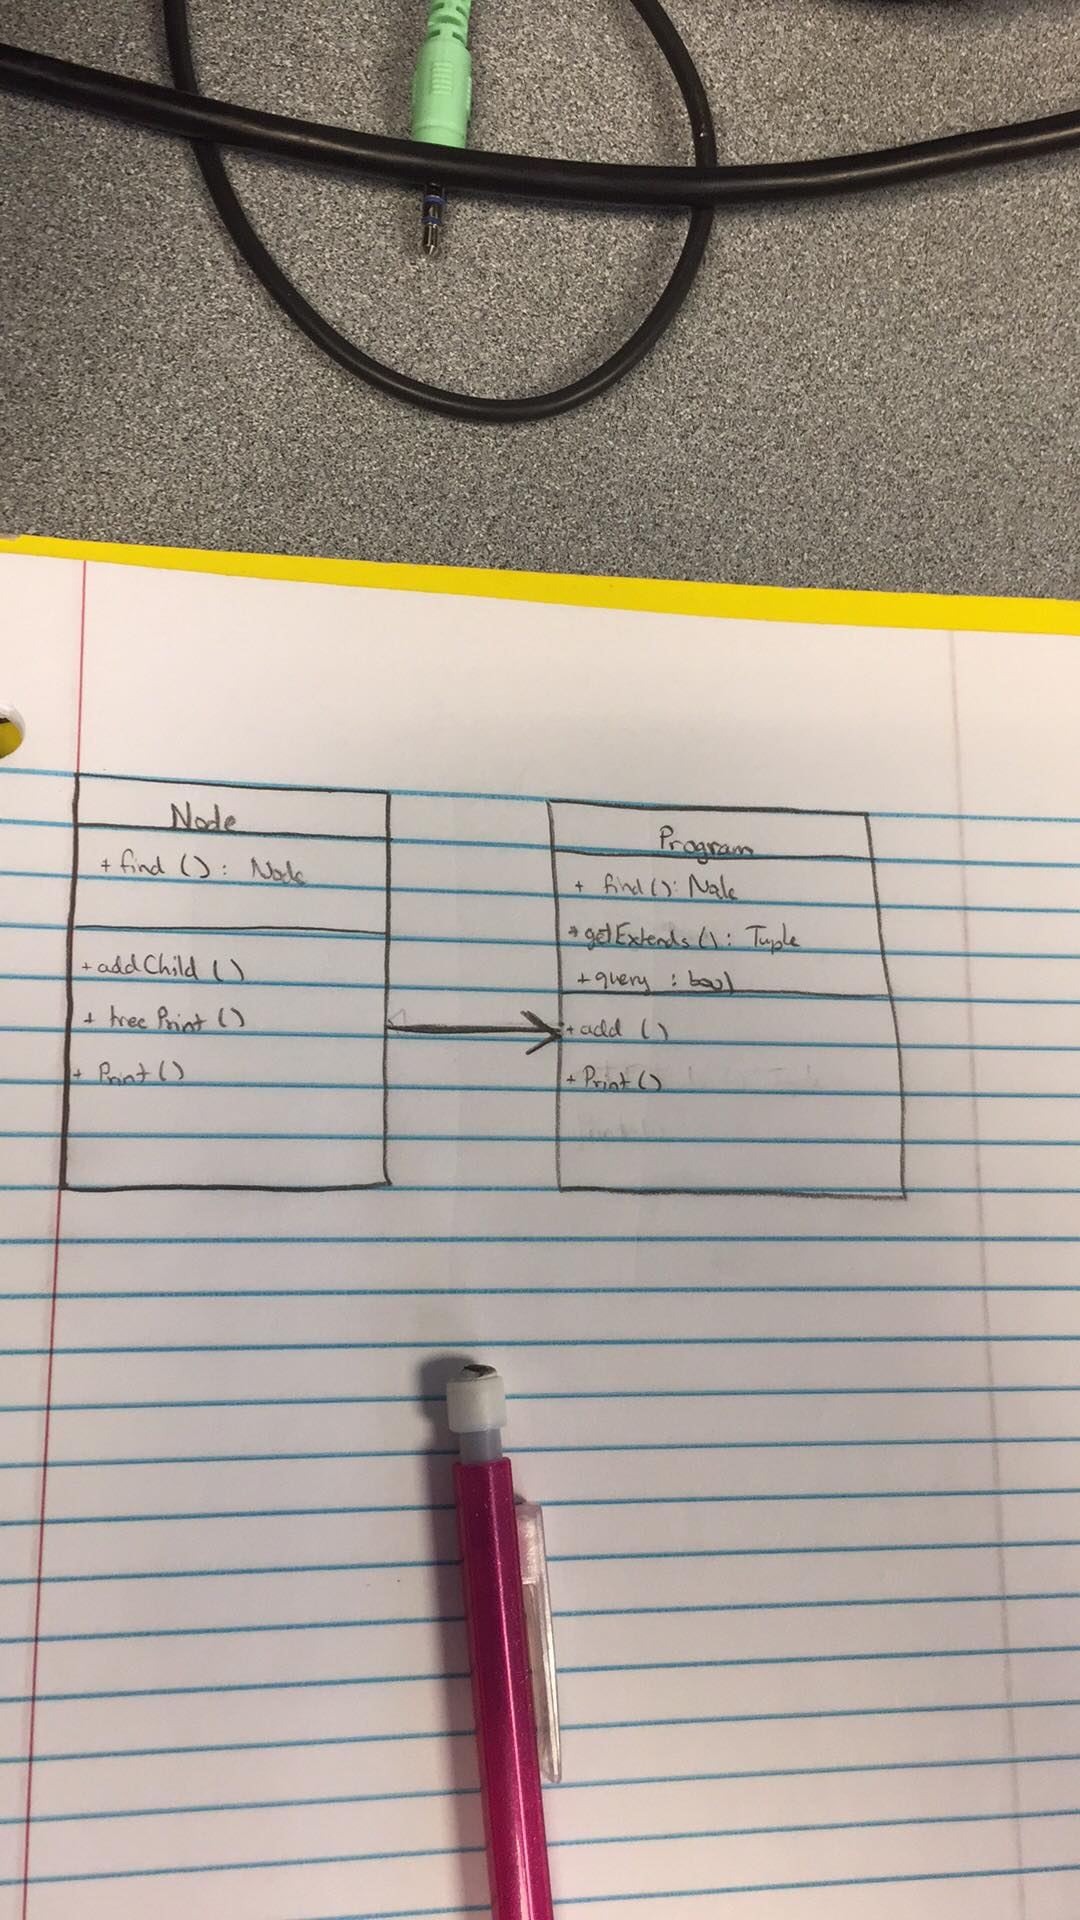 Node
+ find () : Node
+ addChild ()
+ treePrint ()
+ Print ()
Program
+ find () : Node
+ getExtends () : Tuple
+ query : bool
+ add ()
+ Print ()